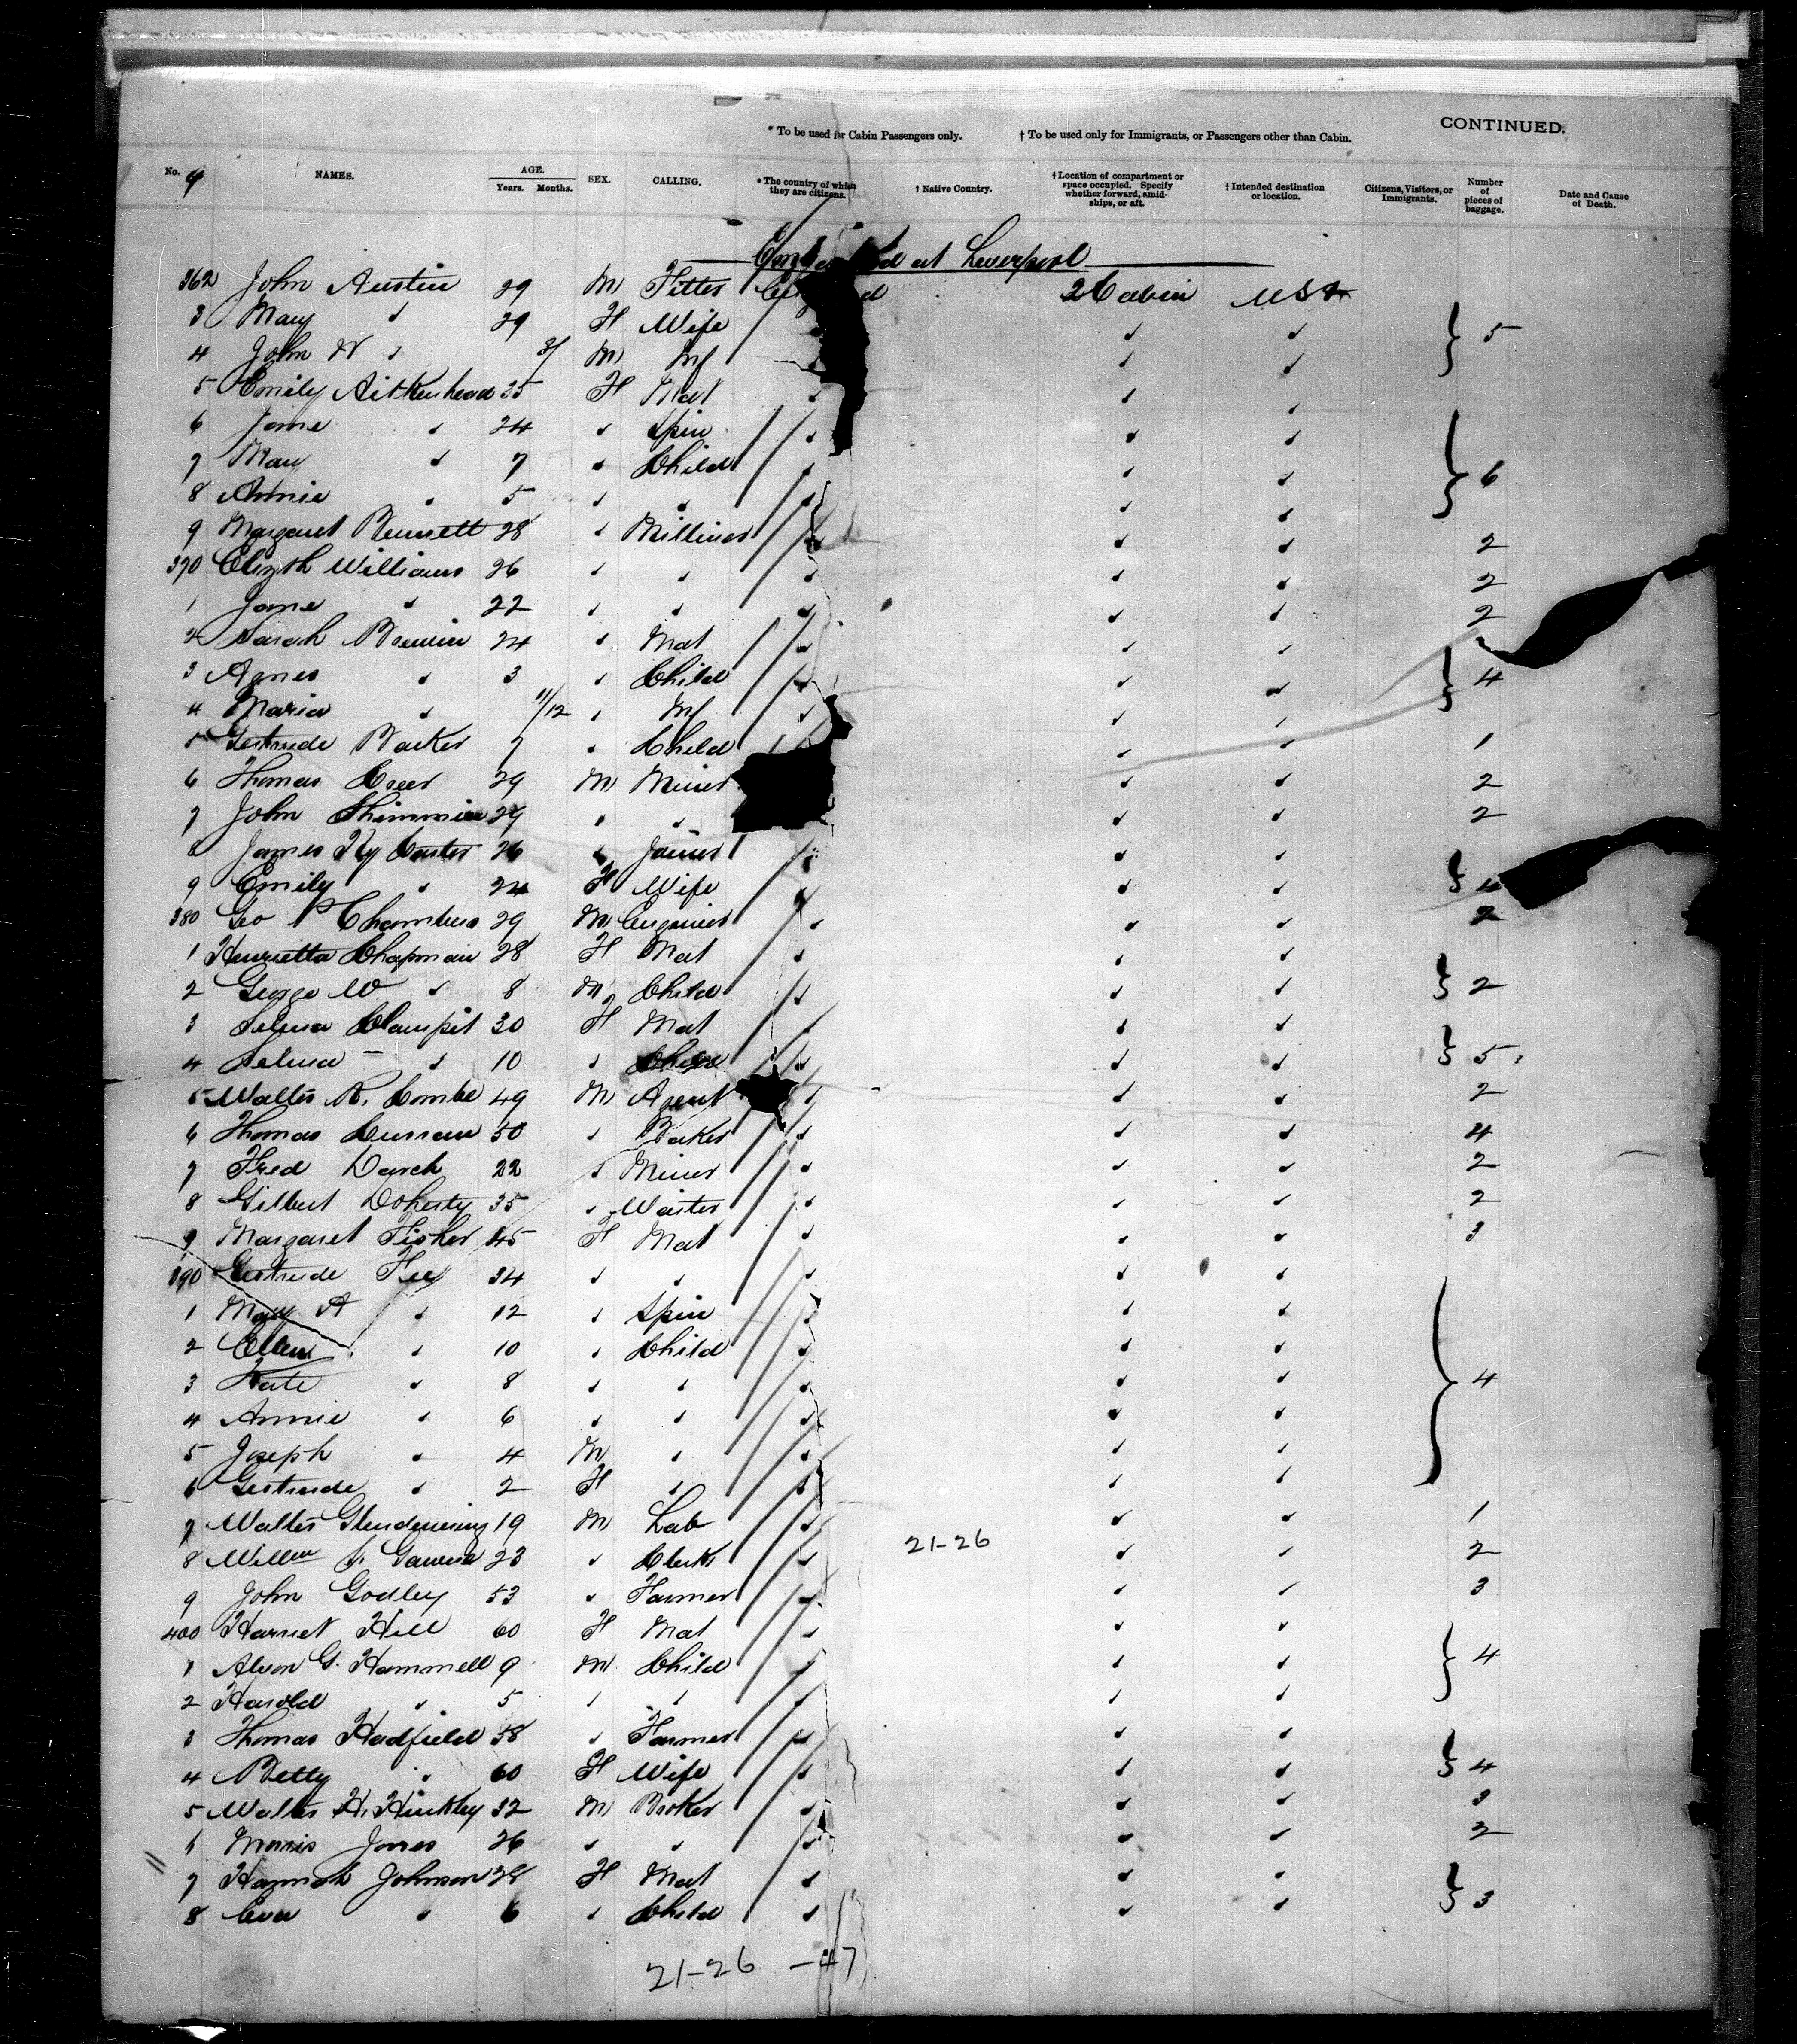 CONTINUED.
* To be used for Cabin Passengers only. † To be used only for Immigrants, or Passengers other than Cabin.
No. NAMES. AGE. Years. Months. SEX. CALLING. * The country of which they are citizens. † Native Country. † Location of compartment or space occupied. Specify whether forward, amidships, or aft. † Intended destination or location. Citizens, Visitors, or Immigrants. Number of pieces of baggage. Date and Cause of Death.
at Liverpool
362 John Austin 29 M Fitter 2 Cabin USA
3 Mary " 29 F Wife " " 5
4 John W " M Inf " "
5 Emily Aitkenhead 35 F Mat " " "
6 Jane " 24 " Spin " " "
7 Mary " 7 " Child " " " 6
8 Annie " 5 " " " " "
9 Margaret Bennett 28 " Milliner " " " 2
370 Elizth Williams 26 " " " " " 2
1 Jane " 22 " " " " " 2
2 Sarah 24 " Mat " " "
3 Agnes " 3 " Child " " " 4
4 Maria " 11/12 " Inf " " "
5 Gertrude Barker 7 " Child " " 1
6 Thomas Creer 29 M Miner " " 2
7 John 29 " " " " 2
8 James Hy 26 " Joiner " " "
9 Emily " 24 F Wife " " "
380 Geo P Chambers 29 M Engineer " " " 2
1 Henrietta Chapman 28 F Mat " " "
2 George W " 8 M Child " " " 2
3 Selina Clampit 30 F Mat " " "
4 Selina " 10 " Child " " " 5
5 Walter R. Combe 49 M Agent " " " 2
6 Thomas Curran 50 " Baker " " " 4
7 Fred Darch 22 " Miner " " " 2
8 Gilbert Doherty 35 " Waiter " " " 2
9 Margaret Fisher 45 F Mat " " " 3
390 Gertrude Fee 34 " " " " "
1 Mary A " 12 " Spin " " "
2 Ellen " 10 " Child " " "
3 Kate " 8 " " " " " 4
4 Annie " 6 " " " " "
5 Joseph " 4 M " " " "
6 Gertrude " 2 F " " " "
7 Walter Glendenning 19 M Lab " " " 1
8 Willm 23 " Clerk " 21-26 " " 2
9 John Godley 53 " Farmer " " " 3
400 Harriet Hill 60 F Mat " " "
1 G. Hammell 9 M Child " " " 4
2 Harold " 5 " " " " "
3 Thomas Hadfield 58 " Farmer " " "
4 Betty " 60 F Wife " " " 4
5 Walter H. Hinkley 32 M Broker " " " 3
6 Morris Jones 26 " " " " " 2
7 Hannah Johnson 28 F Mat " " "
8 Eva " 6 " Child " " " 3
21-26 -47